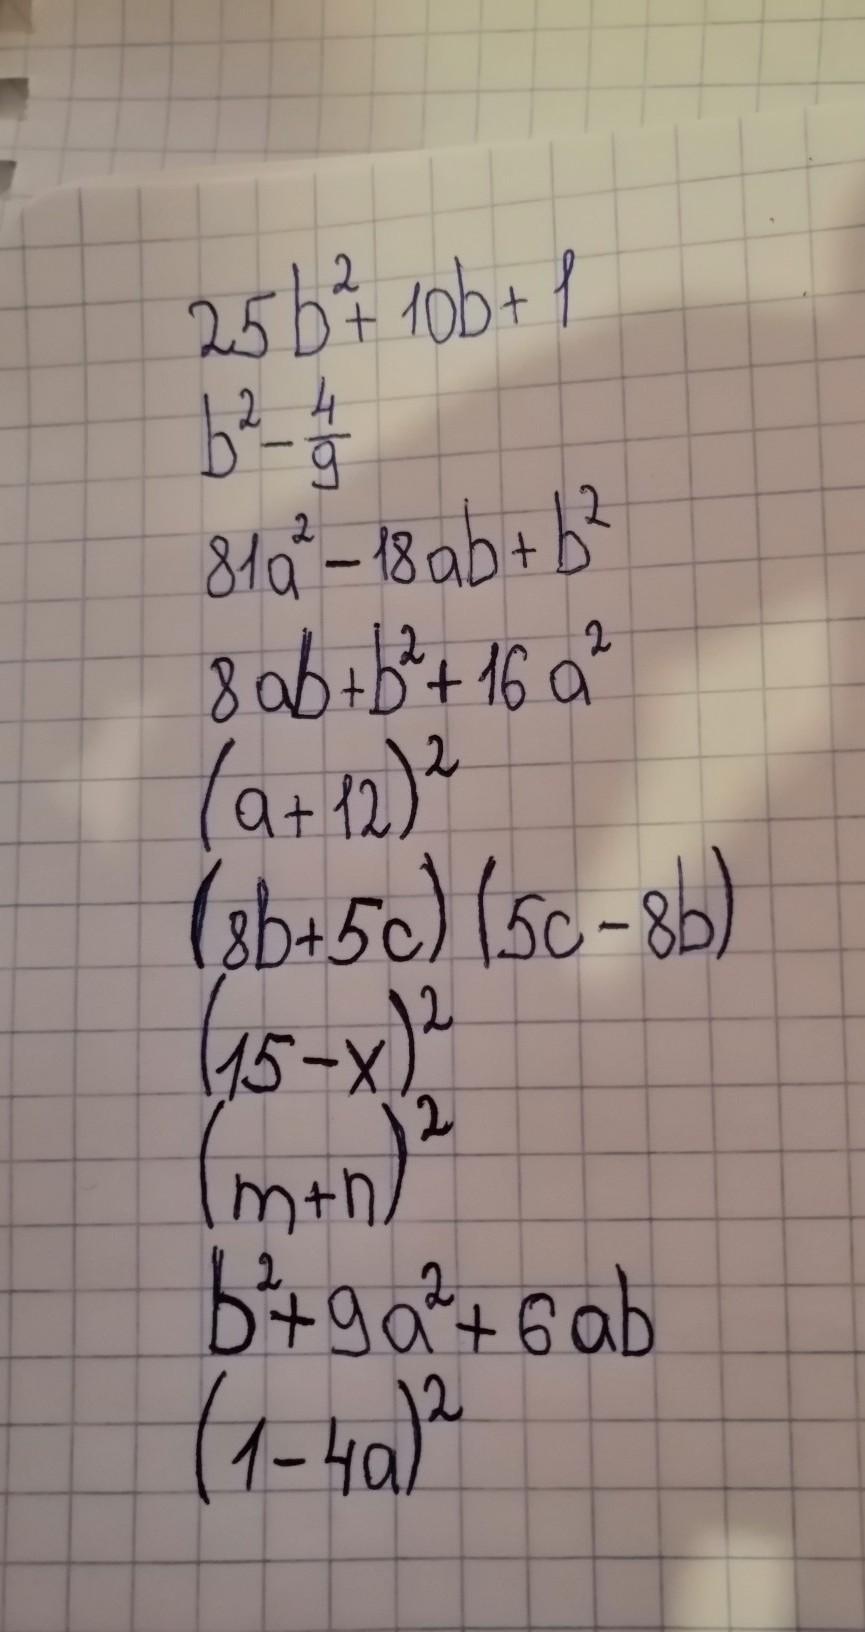 25b² + 10b + 1
b² - 4/9
81a² - 18ab + b²
8ab + b² + 16a²
(a + 12)²
(8b + 5c) (5c - 8b)
(15 - x)²
(m + n)²
b² + 9a² + 6ab
(1 - 4a)²